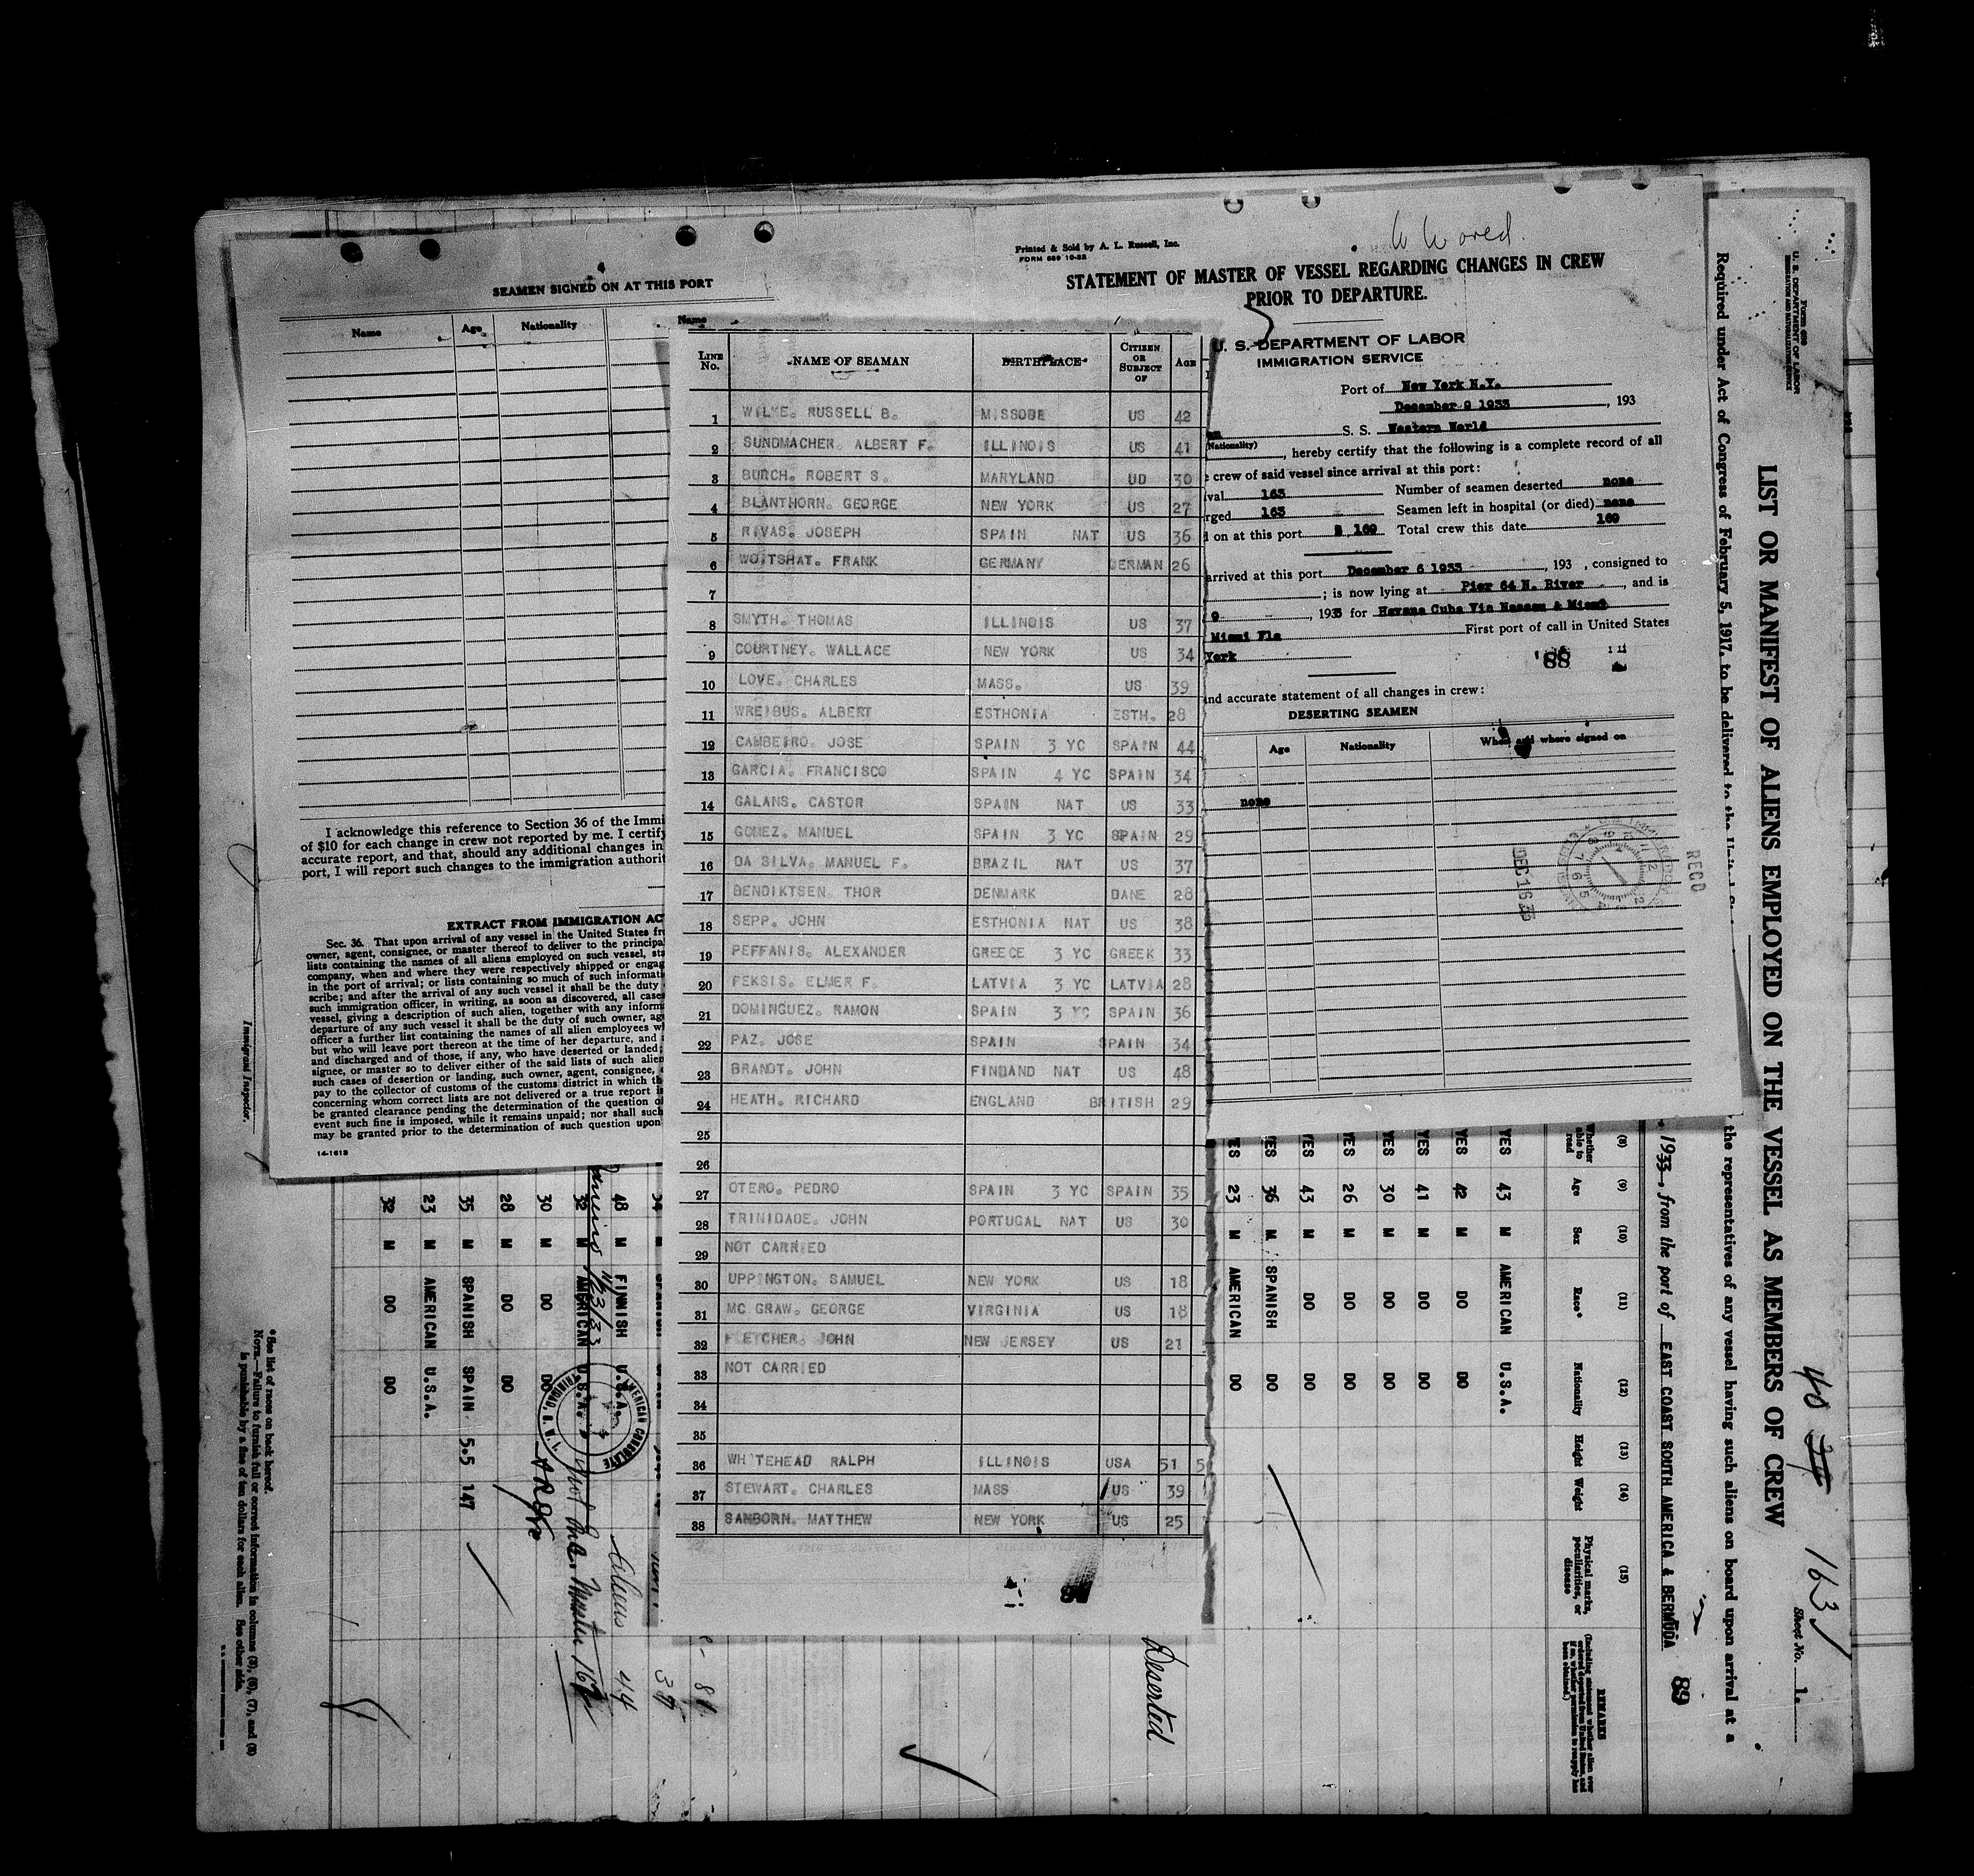 W W ored.
Printed & Sold by A. L. Russell, Inc.
FORM 689 10-32
STATEMENT OF MASTER OF VESSEL REGARDING CHANGES IN CREW
PRIOR TO DEPARTURE.
U. S. DEPARTMENT OF LABOR
IMMIGRATION SERVICE
Port of New York N.Y.
December 9 1933, 193
S. S. Western World
(Nationality)
, hereby certify that the following is a complete record of all
crew of said vessel since arrival at this port:
val 163 Number of seamen deserted none
rged 163 Seamen left in hospital (or died) none
on at this port 169 Total crew this date 169
arrived at this port December 6 1933, 193 , consigned to
; is now lying at Pier 64 N. River, and is
9, 1933 for Havana Cuba Via Nassau & Miami
Miami Fla First port of call in United States
York
'88
and accurate statement of all changes in crew:
DESERTING SEAMEN
Age Nationality When and where signed on
none
DEC 16 33
RECD
4
SEAMEN SIGNED ON AT THIS PORT
Name Age Nationality
I acknowledge this reference to Section 36 of the Immi
of $10 for each change in crew not reported by me. I certify
accurate report, and that, should any additional changes in
port, I will report such changes to the immigration authorit
EXTRACT FROM IMMIGRATION AC
Sec. 36. That upon arrival of any vessel in the United States fr
owner, agent, consignee, or master thereof to deliver to the principa
lists containing the names of all aliens employed on such vessel, sta
company, when and where they were respectively shipped or engag
in the port of arrival; or lists containing so much of such informati
scribe; and after the arrival of any such vessel it shall be the duty
such immigration officer, in writing, as soon as discovered, all cases
vessel, giving a description of such alien, together with any inform
departure of any such vessel it shall be the duty of such owner, age
officer a further list containing the names of all alien employees wh
but who will leave port thereon at the time of her departure, and
and discharged and of those, if any, who have deserted or landed;
signee, or master so to deliver either of the said lists of such alien
such cases of desertion or landing, such owner, agent, consignee,
pay to the collector of customs of the customs district in which th
concerning whom correct lists are not delivered or a true report is
be granted clearance pending the determination of the question of
event such fine is imposed, while it remains unpaid; nor shall such
may be granted prior to the determination of such question upon
14-1613
Name
LINE No. NAME OF SEAMAN BIRTHPLACE CITIZEN OR SUBJECT OF AGE
1 WILKE. RUSSELL B. MISSOBE US 42
2 SUNDMACHER. ALBERT F. ILLINOIS US 41
3 BURCH. ROBERT S. MARYLAND UD 30
4 BLANTHORN. GEORGE NEW YORK US 27
5 RIVAS. JOSEPH SPAIN NAT US 36
6 WOITSHAT. FRANK GERMANY GERMAN 26
7
8 SMYTH. THOMAS ILLINOIS US 37
9 COURTNEY. WALLACE NEW YORK US 34
10 LOVE. CHARLES MASS. US 39
11 WREIBUS. ALBERT ESTHONIA ESTH. 28
12 CAMBEIRO. JOSE SPAIN 3 YC SPAIN 44
13 GARCIA. FRANCISCO SPAIN 4 YC SPAIN 34
14 GALANS. CASTOR SPAIN NAT US 33
15 GOMEZ. MANUEL SPAIN 3 YC SPAIN 29
16 DA SILVA. MANUEL F. BRAZIL NAT US 37
17 BENDIKTSEN. THOR DENMARK DANE 28
18 SEPP. JOHN ESTHONIA NAT US 38
19 PEFFANIS. ALEXANDER GREECE 3 YC GREEK 33
20 PEKSIS. ELMER F. LATVIA 3 YC LATVIA 28
21 DOMINGUEZ. RAMON SPAIN 3 YC SPAIN 36
22 PAZ. JOSE SPAIN SPAIN 34
23 BRANDT. JOHN FINDAND NAT US 48
24 HEATH. RICHARD ENGLAND BRITISH 29
25
26
27 OTERO. PEDRO SPAIN 3 YC SPAIN 35
28 TRINIDADE. JOHN PORTUGAL NAT US 30
29 NOT CARRIED
30 UPPINGTON. SAMUEL NEW YORK US 18
31 MC GRAW. GEORGE VIRGINIA US 18
32 FLETCHER. JOHN NEW JERSEY US 21
33 NOT CARRIED
34
35
36 WHITEHEAD RALPH ILLINOIS USA 51 5
37 STEWART. CHARLES MASS US 39
38 SANBORN. MATTHEW NEW YORK US 25
Form 689
U. S. DEPARTMENT OF LABOR
IMMIGRATION AND NATURALIZATION SERVICE
40 163
Sheet No. 1.
LIST OR MANIFEST OF ALIENS EMPLOYED ON THE VESSEL AS MEMBERS OF CREW
Required under Act of Congress of February 5, 1917, to be delivered to the United States
the representatives of any vessel having such aliens on board upon arrival at a
1933, from the port of EAST COAST SOUTH AMERICA & BERMUDA 89
(8) (9) (10) (11) (12) (13) (14) (15)
Whether able to read Age Sex Race* Nationality Height Weight Physical marks, peculiarities, or disease REMARKS
YES 43 M AMERICAN U.S.A.
YES 42 M DO DO
YES 41 M DO DO
YES 30 M DO DO
YES 26 M DO DO
YES 43 M DO DO
YES 36 M SPANISH DO
YES 23 M AMERICAN DO
Deserted
48 M FINNISH U.S.A.
32 M AMERICAN U.S.A.
30 M DO DO
28 M DO DO
35 M SPANISH SPAIN 5.5 147
23 M AMERICAN U.S.A.
32 M DO DO
AMERICAN CONSULATE
TRINIDAD, B. W. I.
Aliens 44
*See list of races on back hereof.
NOTE.—Failure to furnish full or correct information in columns (3), (6), (7), and (8)
is punishable by a fine of ten dollars for each alien. See other side.
Immigrant Inspector.